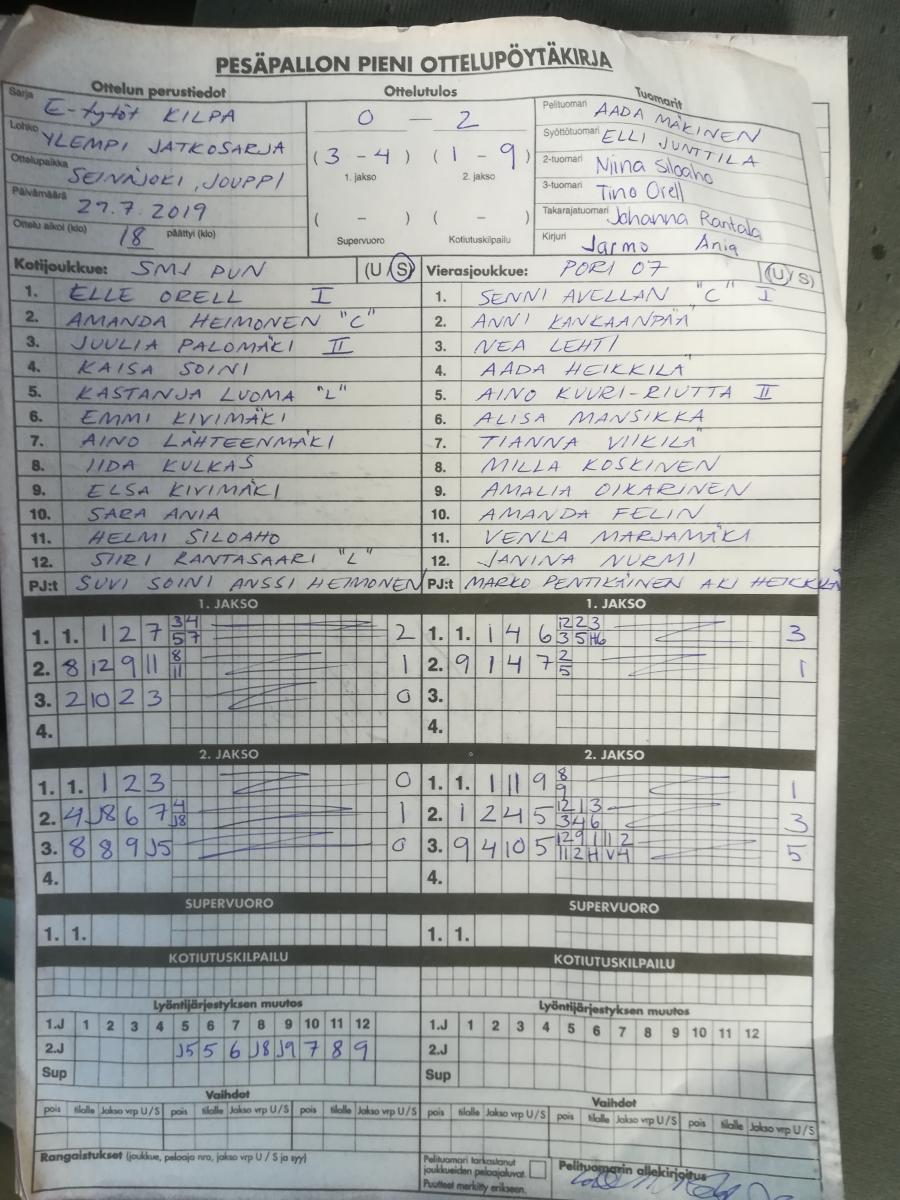 PESÄPALLON PIENI OTTELUPÖYTÄKIRJA
Ottelun perustiedot
Sarja E-tytöt KILPA
Lohko YLEMPI JATKOSARJA
Ottelupaikka SEINÄJOKI, JOUPPI
Päivämäärä 27.7.2019
Ottelu alkoi (klo) 18 päättyi (klo)
Ottelutulos
0 — 2
(3 - 4) (1 - 9)
1. jakso 2. jakso
( - ) ( - )
Supervuoro Kotiutuskilpailu
Tuomarit
Pelituomari AADA MÄKINEN
Syöttötuomari ELLI JUNTTILA
2-tuomari Niina Siloaho
3-tuomari Tino Orell
Takarajatuomari Johanna Rantala
Kirjuri Jarmo Ania
Kotijoukkue: SMJ PUN (U/S)
1. ELLE ORELL I
2. AMANDA HEIMONEN "C"
3. JUULIA PALOMÄKI II
4. KAISA SOINI
5. KASTANJA LUOMA "L"
6. EMMI KIVIMÄKI
7. AINO LÄHTEENMÄKI
8. IIDA KULKAS
9. ELSA KIVIMÄKI
10. SARA ANIA
11. HELMI SILOAHO
12. SIIRI RANTASAARI "L"
PJ:t SUVI SOINI ANSSI HEIMONEN
Vierasjoukkue: PORI 07 (U/S)
1. SENNI AVELLAN "C" I
2. ANNI KANKAANPÄÄ
3. NEA LEHTI
4. AADA HEIKKILÄ
5. AINO KUURI-RIUTTA II
6. ALISA MANSIKKA
7. TIANNA VIIKILÄ
8. MILLA KOSKINEN
9. AMALIA OIKARINEN
10. AMANDA FELIN
11. VENLA MARJAMÄKI
12. JANINA NURMI
PJ:t MARKO PENTIKÄINEN AKI HEIKKILÄ
1. JAKSO
1. 1. 1 2 7 3 4 2
5 7
2. 8 12 9 11 8 1
11
3. 2 10 2 3 0
4.
1. JAKSO
1. 1. 1 4 6 12 2 3 3
3 5 H6
2. 9 1 4 7 2 1
5
3.
4.
2. JAKSO
1. 1. 1 2 3 0
2. 4 J8 6 7 4 1
J8
3. 8 8 9 J5 0
4.
2. JAKSO
1. 1. 1 11 9 8 1
9
2. 1 2 4 5 12 1 3 3
3 4 6
3. 9 4 10 5 12 9 1 1 1 2 5
11 2 H V4
4.
SUPERVUORO
1. 1.
SUPERVUORO
1. 1.
KOTIUTUSKILPAILU
KOTIUTUSKILPAILU
Lyöntijärjestyksen muutos
1.J 1 2 3 4 5 6 7 8 9 10 11 12
2.J J5 5 6 J8 J9 7 8 9
Sup
Lyöntijärjestyksen muutos
1.J 1 2 3 4 5 6 7 8 9 10 11 12
2.J
Sup
Vaihdot
pois tilalle Jakso vrp U/S pois tilalle Jakso vrp U/S pois tilalle Jakso vrp U/S
Vaihdot
pois tilalle Jakso vrp U/S pois tilalle Jakso vrp U/S pois tilalle Jakso vrp U/S
Rangaistukset (joukkue, pelaaja nro, jakso vrp U / S ja syy)
Pelituomari tarkastanut
joukkueiden pelaajaluvat.
Puutteet merkitty erikseen.
Pelituomarin allekirjoitus